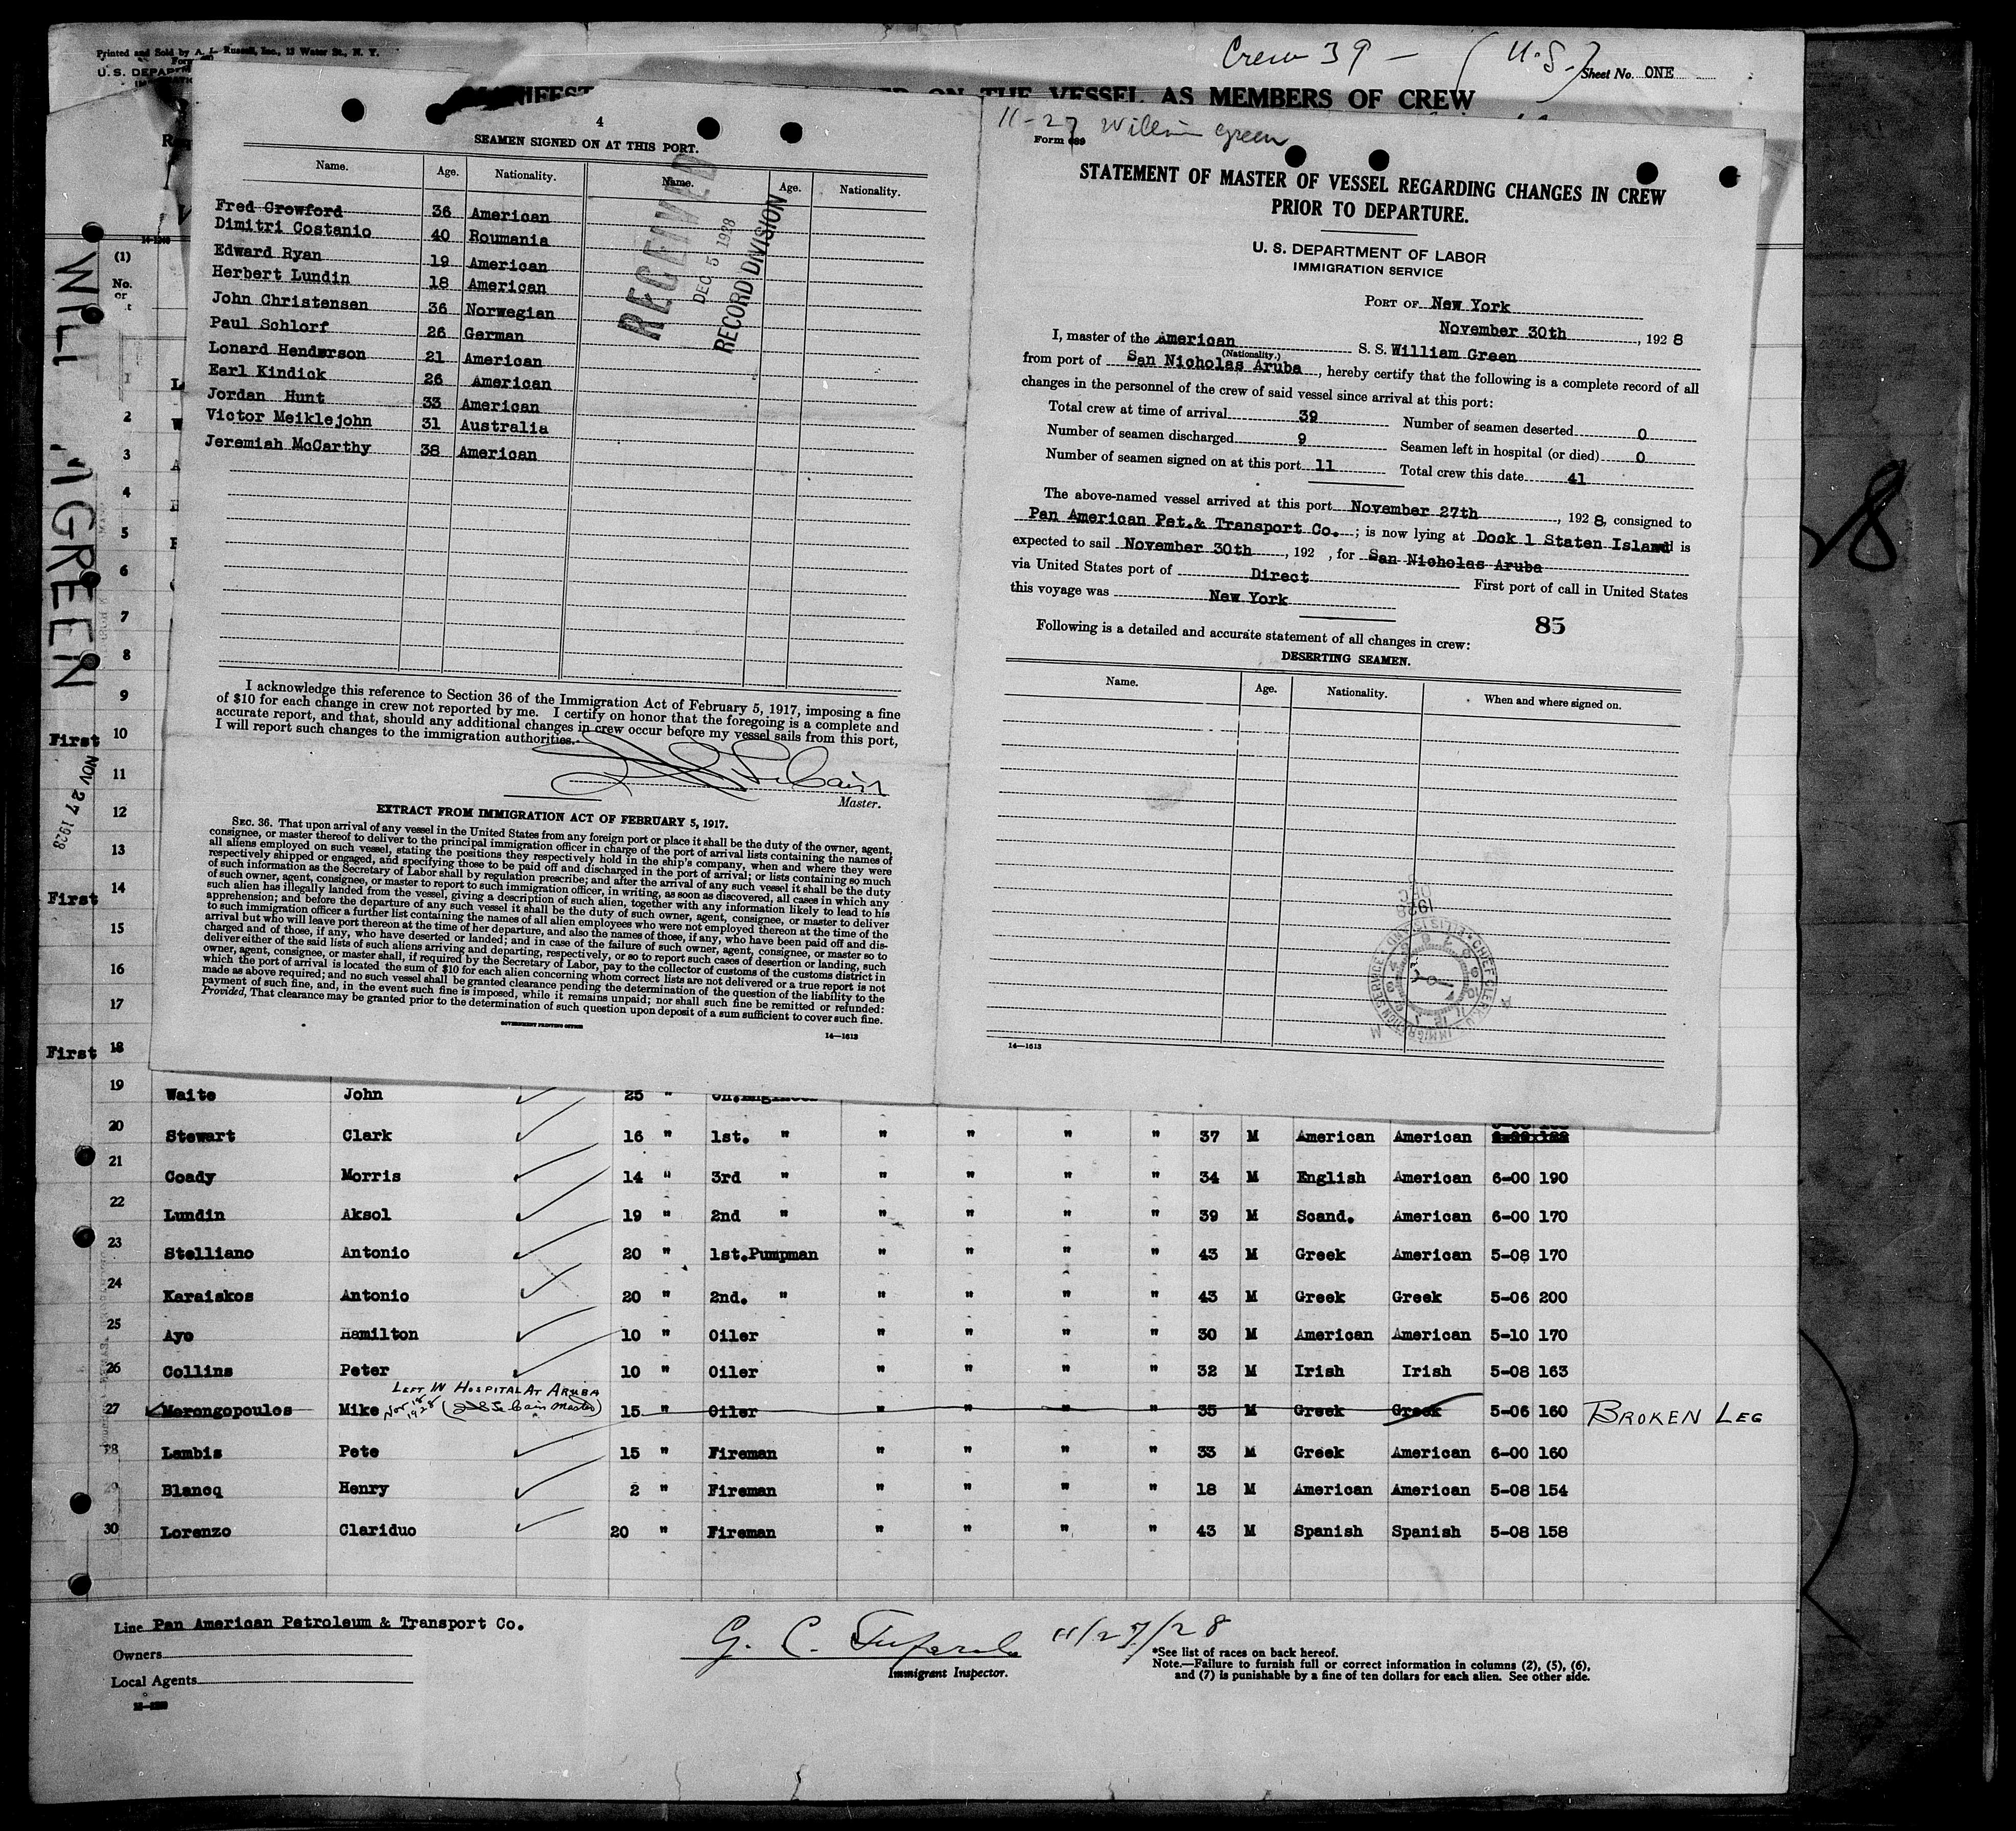 Printed and Sold by A. L. Russell, Inc., 13 Water St., N. Y.
U. S. DEPARTM
Crew 39 - (U.S.)
Sheet No. ONE
ON THE VESSEL AS MEMBERS OF CREW
4
SEAMEN SIGNED ON AT THIS PORT.
Name. Age. Nationality. Name. Age. Nationality.
Fred Crowford 36 American
Dimitri Costanio 40 Roumania
Edward Ryan 19 American
Herbert Lundin 18 American
John Christensen 36 Norwegian
Paul Schlorf 26 German
Lonard Henderson 21 American
Earl Kindick 26 American
Jordan Hunt 33 American
Victor Meiklejohn 31 Australia
Jeremiah McCarthy 38 American
RECEIVED
DEC 5 1928
RECORD DIVISION
I acknowledge this reference to Section 36 of the Immigration Act of February 5, 1917, imposing a fine
of $10 for each change in crew not reported by me. I certify on honor that the foregoing is a complete and
accurate report, and that, should any additional changes in crew occur before my vessel sails from this port,
I will report such changes to the immigration authorities.
Master.
EXTRACT FROM IMMIGRATION ACT OF FEBRUARY 5, 1917.
SEC. 36. That upon arrival of any vessel in the United States from any foreign port or place it shall be the duty of the owner, agent,
consignee, or master thereof to deliver to the principal immigration officer in charge of the port of arrival lists containing the names of
all aliens employed on such vessel, stating the positions they respectively hold in the ship's company, when and where they were
respectively shipped or engaged, and specifying those to be paid off and discharged in the port of arrival; or lists containing so much
of such information as the Secretary of Labor shall by regulation prescribe; and after the arrival of any such vessel it shall be the duty
of such owner, agent, consignee, or master to report to such immigration officer, in writing, as soon as discovered, all cases in which any
such alien has illegally landed from the vessel, giving a description of such alien, together with any information likely to lead to his
apprehension; and before the departure of any such vessel it shall be the duty of such owner, agent, consignee, or master to deliver
to such immigration officer a further list containing the names of all alien employees who were not employed thereon at the time of the
arrival but who will leave port thereon at the time of her departure, and also the names of those, if any, who have been paid off and dis-
charged and of those, if any, who have deserted or landed; and in case of the failure of such owner, agent, consignee, or master so to
deliver either of the said lists of such aliens arriving and departing, respectively, or so to report such cases of desertion or landing, such
owner, agent, consignee, or master shall, if required by the Secretary of Labor, pay to the collector of customs of the customs district in
which the port of arrival is located the sum of $10 for each alien concerning whom correct lists are not delivered or a true report is not
made as above required; and no such vessel shall be granted clearance pending the determination of the question of the liability to the
payment of such fine, and, in the event such fine is imposed, while it remains unpaid; nor shall such fine be remitted or refunded:
Provided, That clearance may be granted prior to the determination of such question upon deposit of a sum sufficient to cover such fine.
GOVERNMENT PRINTING OFFICE
14—1613
11-27 William Green
Form 689
STATEMENT OF MASTER OF VESSEL REGARDING CHANGES IN CREW
PRIOR TO DEPARTURE.
U. S. DEPARTMENT OF LABOR
IMMIGRATION SERVICE
PORT OF New York
November 30th, 1928
I, master of the American S. S. William Green
(Nationality.)
from port of San Nicholas Aruba, hereby certify that the following is a complete record of all
changes in the personnel of the crew of said vessel since arrival at this port:
Total crew at time of arrival 39 Number of seamen deserted 0
Number of seamen discharged 9 Seamen left in hospital (or died) 0
Number of seamen signed on at this port 11 Total crew this date 41
The above-named vessel arrived at this port November 27th, 1928, consigned to
Pan American Pet.& Transport Co.; is now lying at Dock 1 Staten Island is
expected to sail November 30th, 192 , for San Nicholas Aruba
via United States port of Direct First port of call in United States
this voyage was New York
85
Following is a detailed and accurate statement of all changes in crew:
DESERTING SEAMEN.
Name. Age. Nationality. When and where signed on.
DEC
1928
14—1613
WILL M GREEN
(1)
No.
2
3
4
5
6
7
8
9
First 10
NOV 27 1928
11
12
13
First 14
15
16
17
First 18
19 Waite John 25 "
20 Stewart Clark 16 " 1st. " " " " " 37 M American American
21 Coady Morris 14 " 3rd " " " " " 34 M English American 6-00 190
22 Lundin Aksol 19 " 2nd " " " " " 39 M Scand. American 6-00 170
23 Stelliano Antonio 20 " 1st.Pumpman " " " " 43 M Greek American 5-08 170
24 Karaiskos Antonio 20 " 2nd. " " " " " 43 M Greek Greek 5-06 200
25 Ayo Hamilton 10 " Oiler " " " " 30 M American American 5-10 170
26 Collins Peter 10 " Oiler " " " " 32 M Irish Irish 5-08 163
LEFT IN HOSPITAL AT ARUBA
27 Morongopoulos Mike Nov 18 1928 15 " Oiler " " " " 35 M Greek Greek 5-06 160 BROKEN LEG
28 Lambis Pete 15 " Fireman " " " " 33 M Greek American 6-00 160
29 Blancq Henry 2 " Fireman " " " " 18 M American American 5-08 154
30 Lorenzo Clariduo 20 " Fireman " " " " 43 M Spanish Spanish 5-08 158
Line Pan American Petroleum & Transport Co.
Owners
Local Agents
G. C. 11/27/28
Immigrant Inspector.
*See list of races on back hereof.
Note.—Failure to furnish full or correct information in columns (2), (5), (6),
and (7) is punishable by a fine of ten dollars for each alien. See other side.
28